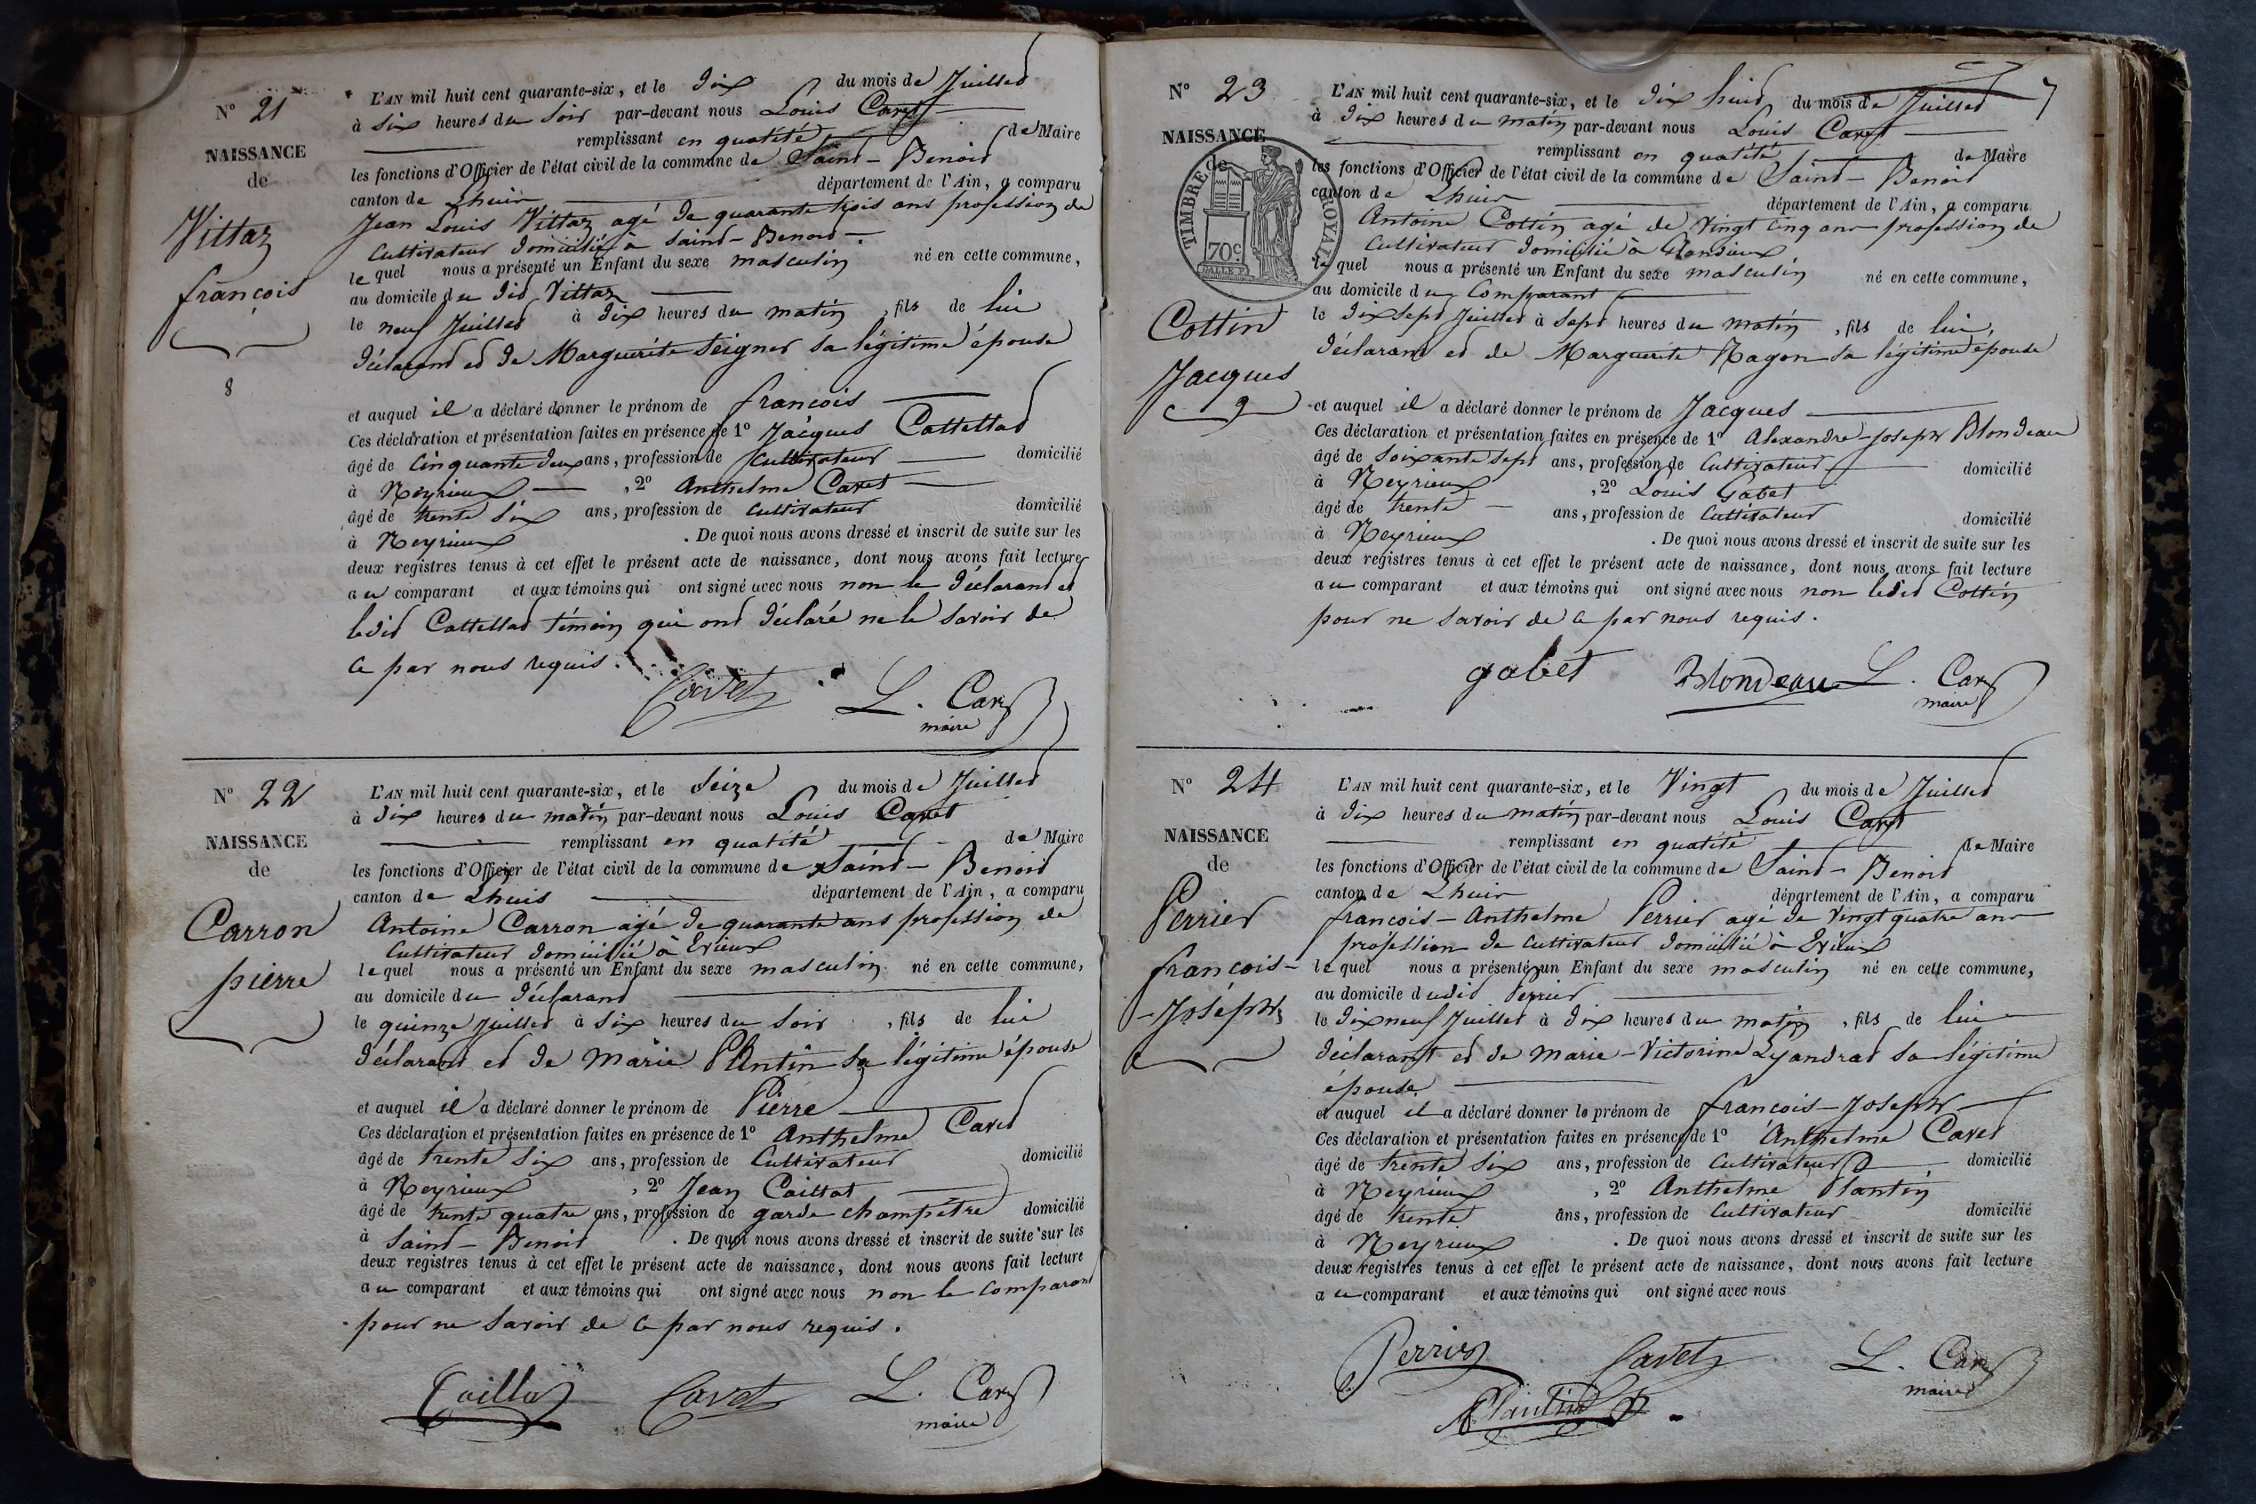 N° 21
NAISSANCE
de
Vittaz
françois
8
L'AN mil huit cent quarante-six, et le dix du mois de Juillet
à six heures du soir par-devant nous Louis Cavet
remplissant en qualité de Maire
les fonctions d'Officier de l'état civil de la commune de Saint-Benoit
canton de Lhuis département de l'Ain, a comparu
Jean Louis Vittaz agé de quarante trois ans profession de
Cultivateur domicilié à Saint-Benoit
le quel nous a présenté un Enfant du sexe masculin né en cette commune,
au domicile du dit Vittaz
le neuf Juillet à dix heures du matin, fils de lui
déclarant et de Marguerite Seignet sa légitime épouse
et auquel il a déclaré donner le prénom de françois
Ces déclaration et présentation faites en présence de 1° Jacques Cattellad
âgé de cinquante deux ans, profession de Cultivateur domicilié
à Neyrieux, 2° Anthelme Cavet
âgé de trente six ans, profession de cultivateur domicilié
à Neyrieux. De quoi nous avons dressé et inscrit de suite sur les
deux registres tenus à cet effet le présent acte de naissance, dont nous avons fait lecture
au comparant et aux témoins qui ont signé avec nous non le déclarant et
ledit Cattellad témoin qui ont déclaré ne le savoir de
ce par nous requis.
Cavet L. Cavet
maire
N° 22
NAISSANCE
de
Carron
pierre
L'AN mil huit cent quarante-six, et le Seize du mois de Juillet
à dix heures du matin par-devant nous Louis Cavet
remplissant en qualité de Maire
les fonctions d'Officier de l'état civil de la commune de Saint-Benoit
canton de Lhuis département de l'Ain, a comparu
Antoine Carron agé de quarante ans profession de
Cultivateur domicilié à Evieux
le quel nous a présenté un Enfant du sexe masculin né en cette commune,
au domicile du déclarant
le quinze Juillet à six heures du soir, fils de lui
déclarant et de Marie Plantin sa légitime épouse
et auquel il a déclaré donner le prénom de Pierre
Ces déclaration et présentation faites en présence de 1° Anthelme Cavet
âgé de trente six ans, profession de Cultivateur domicilié
à Neyrieux, 2° Jean Caillat
âgé de trente quatre ans, profession de garde champêtre domicilié
à Saint-Benoit. De quoi nous avons dressé et inscrit de suite sur les
deux registres tenus à cet effet le présent acte de naissance, dont nous avons fait lecture
au comparant et aux témoins qui ont signé avec nous non le comparant
pour ne savoir de ce par nous requis.
Caillat Cavet L. Cavet
maire
7
N° 23
NAISSANCE
de
TIMBRE ROYAL
70 c
Cottin
Jacques
9
L'AN mil huit cent quarante-six, et le dix huit du mois de Juillet
à dix heures du matin par-devant nous Louis Cavet
remplissant en qualité de Maire
les fonctions d'Officier de l'état civil de la commune de Saint-Benoit
canton de Lhuis département de l'Ain, a comparu
Antoine Cottin agé de vingt cinq ans profession de
Cultivateur domicilié à
le quel nous a présenté un Enfant du sexe masculin né en cette commune,
au domicile du Comparant
le dix sept Juillet à sept heures du matin, fils de lui,
déclarant et de Marguerite Nagon sa légitime épouse
et auquel il a déclaré donner le prénom de Jacques
Ces déclaration et présentation faites en présence de 1° Alexandre-Joseph Blondeau
âgé de soixante sept ans, profession de Cultivateur domicilié
à Neyrieux, 2° Louis Gabet
âgé de trente ans, profession de Cultivateur domicilié
à Neyrieux. De quoi nous avons dressé et inscrit de suite sur les
deux registres tenus à cet effet le présent acte de naissance, dont nous avons fait lecture
au comparant et aux témoins qui ont signé avec nous non ledit Cottin
pour ne savoir de ce par nous requis.
gabet Blondeau L. Cavet
maire
N° 24
NAISSANCE
de
Perrier
françois-
-Joseph
L'AN mil huit cent quarante-six, et le Vingt du mois de Juillet
à dix heures du matin par-devant nous Louis Cavet
remplissant en qualité de Maire
les fonctions d'Officier de l'état civil de la commune de Saint-Benoit
canton de Lhuis département de l'Ain, a comparu
françois-Anthelme Perrier agé de vingt quatre ans
profession de cultivateur domicilié à Evieux
le quel nous a présenté un Enfant du sexe masculin né en cette commune,
au domicile dudit Perrier
le dix neuf Juillet à dix heures du matin, fils de lui
déclarant et de Marie-Victorine Lyandrad sa légitime
épouse
et auquel il a déclaré donner le prénom de françois-Joseph
Ces déclaration et présentation faites en présence de 1° Anthelme Cavet
âgé de trente six ans, profession de Cultivateur domicilié
à Neyrieux, 2° Anthelme Plantin
âgé de trente ans, profession de Cultivateur domicilié
à Neyrieux. De quoi nous avons dressé et inscrit de suite sur les
deux registres tenus à cet effet le présent acte de naissance, dont nous avons fait lecture
au comparant et aux témoins qui ont signé avec nous
Perrier Cavet L. Cavet
maire
Plantin